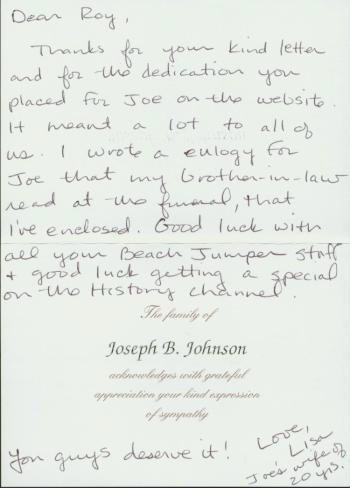 Dear Roy,
Thanks for your kind letter
and for the dedication you
placed for Joe on the website.
It meant a lot to all of
us. I wrote a eulogy for
Joe that my brother-in-law
read at the funeral, that
I've enclosed. Good luck with
all your Beach Jumper stuff
+ good luck getting a special
on the History channel.
The family of
Joseph B. Johnson
acknowledges with grateful
appreciation your kind expression
of sympathy
You guys deserve it!
Love,
Lisa
Joe's wife of
20 yrs.